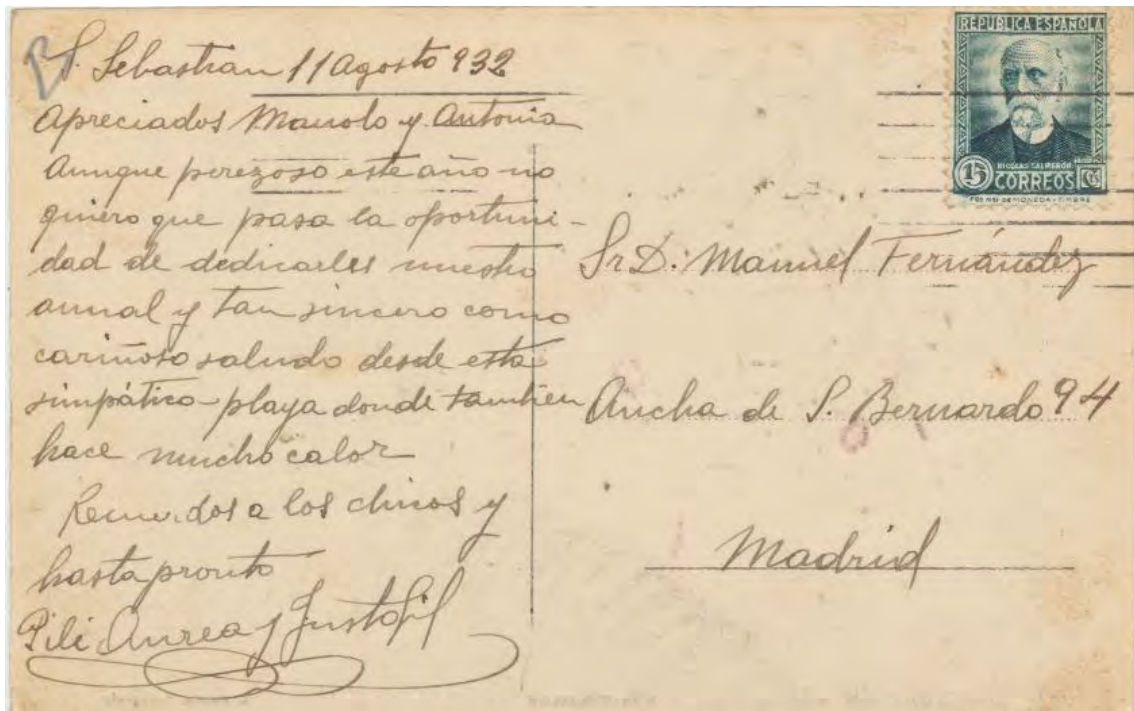 S. Sebastian 11 Agosto 932
Apreciados Manolo y Antonia
Aunque perezoso este año no
quiero que pasa la oportuni-
dad de dedicarles nuestro
annal y tan sincero como
cariñoso saludo desde esta
simpática playa donde tambien
hace mucho calor
Recuerdos a los chicos y
hasta pronto
Pili Aurea y Justo Gil
REPUBLICA ESPAÑOLA
NICOLAS SALMERON
15 CORREOS
Sr D. Manuel Fernández
Ancha de S. Bernardo 94
Madrid